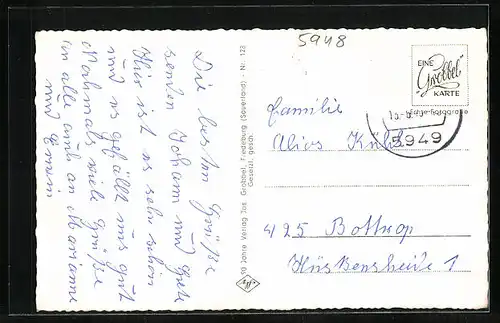 5948
Die besten Grüße
senden Johann und
Hier ist es sehr schön
und es gefällt uns gut
Nochmals viele Grüße
an alle und an Marianne
und Erwin
90 Jahre Verlag Jos. Grobbel, Fredeburg (Sauerland) - Nr. 123
Gesetzl. gesch.
EINE
Grobbel
KARTE
5949
Familie
Alios Kühl
425 Bottrop
Hüskensheide 1